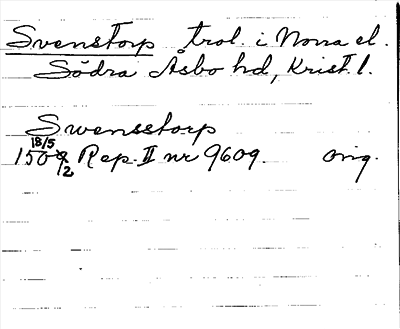 Svenstorp trol. i Norra el.
Södra Åsbo hd, Krist. l.
Swensstorp
1509 18/5 Rep. II nr 9609. orig.